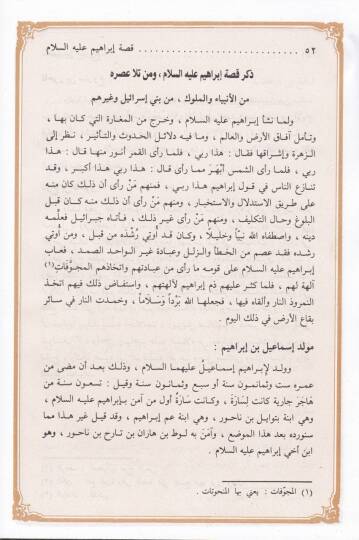 ٥٢ . . . . . . . . . . . . . . . . . . . . . . . . . . . . قصة إبراهيم عليه السلام
ذكر قصة إبراهيم عليه السلام، ومن تلا عصره
من الأنبياء والملوك ، من بني إسرائيل وغيرهم
ولما نشأ إبراهيم عليه السلام ، وخرج من المغارة التي كان بها ،
وتأمل آفاق الأرض والعالم ، وما فيه دلائل الحدوث والتأثير ، نظر إلى
الزهرة وإشراقها فقال : هذا ربي ، فلما رأى القمر أنور منها قال : هذا
ربي ، فلما رأى الشمس أبْهَرَ مما رأى قال : هذا ربي هذا أكبر ، وقد
تنازع الناس في قول إبراهيم هذا ربي ، فمنهم مَنْ رأى أن ذلك كان منه
على طريق الاستدلال والاستخبار ، ومنهم مَنْ رأى أن ذلك منه كان قبل
البلوغ وحال التكليف ، ومنهم مَنْ رأى غير ذلك ، فأتاه جبرائيل فعلَّمه
دينه ، واصطفاه الله نبيَّاً وخليلاً ، وكان قد أُوتي رُشْدَه من قبل ، ومن أُوتي
رشده فقد عصم من الخطأ والزلل وعبادة غير الواحد الصمد ، فعاب
إبراهيم عليه السلام على قومه ما رأى من عبادتهم واتخاذهم المجوَّفَاتِ(١)
آلهة لهم ، فلما كثر عليهم ذم إبراهيم لآلهتهم ، واستفاض ذلك فيهم اتخذ
النمروذ النار وألقاه فيها ، فجعلها الله بَرْداً وَسَلَاماً ، وخمدت النار في سائر
بقاع الأرض في ذلك اليوم .
مولد إسماعيل بن إبراهيم :
وولد لإبراهيم إسماعيلُ عليهما السلام ، وذلك بعد أن مضى من
عمره ست وثمانون سنة أو سبع وثمانون سنة وقيل : تسعون سنة من
هَاجَرَ جارية كانت لِسَارَةَ ، وكانت سَارَةُ أول من آمن بإبراهيم عليه السلام ،
وهي ابنة بتوايل بن ناحور ، وهي ابنة عم إبراهيم ، وقد قيل غير هذا مما
سنورده بعد هذا الموضع ، وآمَنَ به لوط بن هاران بن تارح بن ناحور ، وهو
ابن أخي إبراهيم عليه السلام .
(١) المجوّفات : يعني بها المنحوتات .